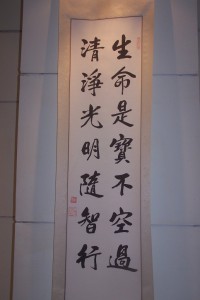 生命是寶不空過
清淨光明隨智行